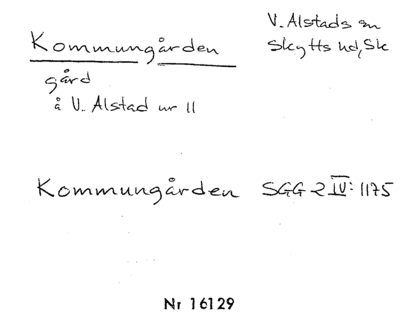 Kommungården
V. Alstads sn
Skytts hd, Sk
gård
å V. Alstad nr 11
Kommungården SGG 2 IV: 1175
Nr 16129